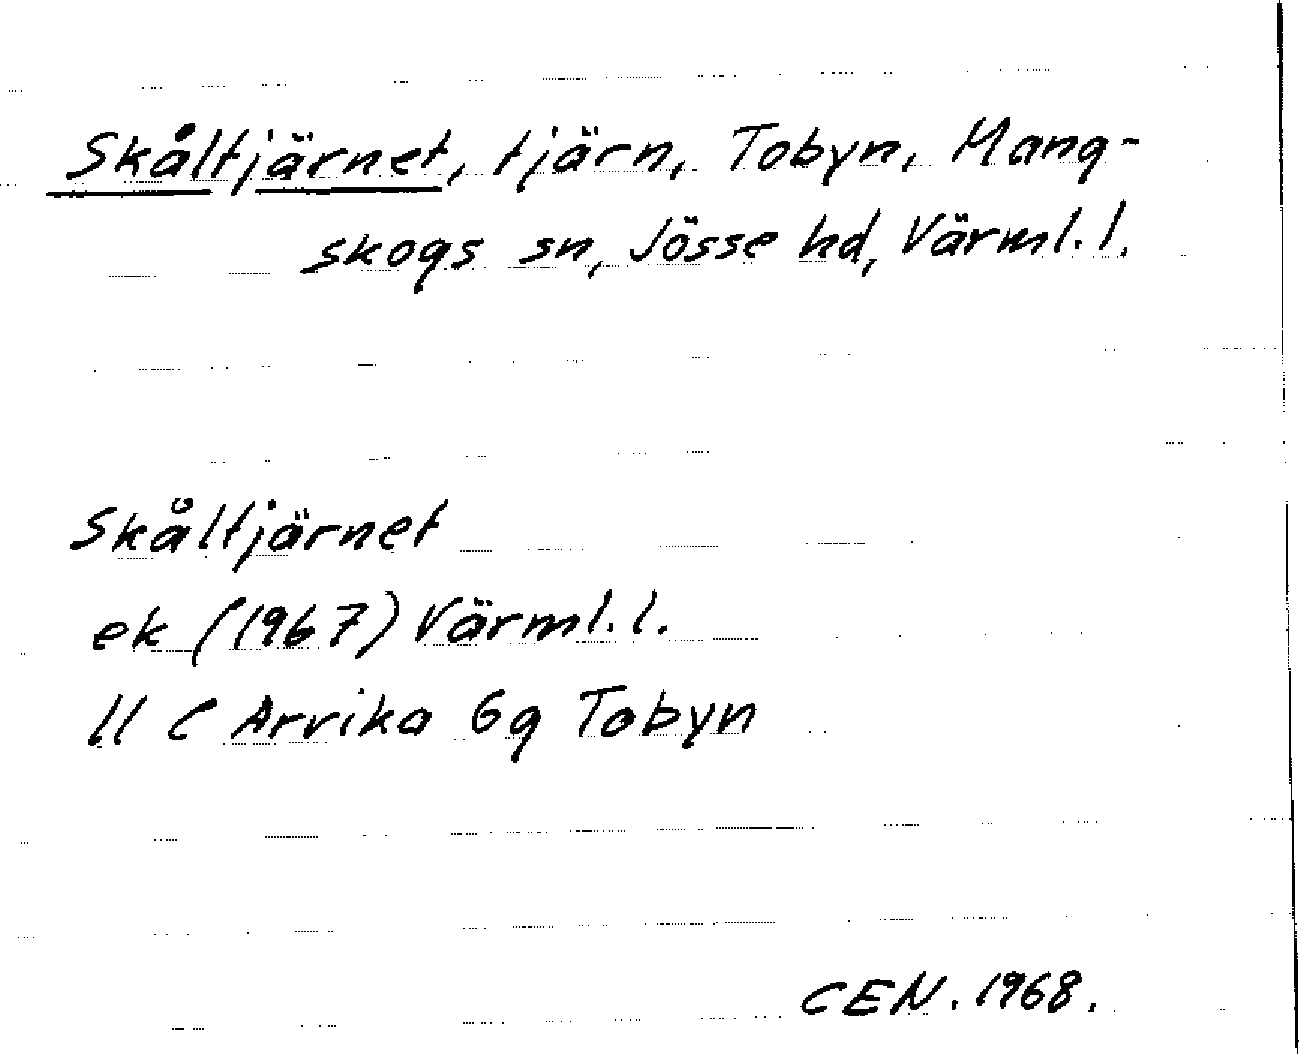 Skåltjärnet, tjärn, Tobyn, Mang-
skogs sn, Jösse hd, Värml. l.
Skåltjärnet
ek (1967) Värml. l.
11 C Arvika 6g Tobyn
CEN. 1968.